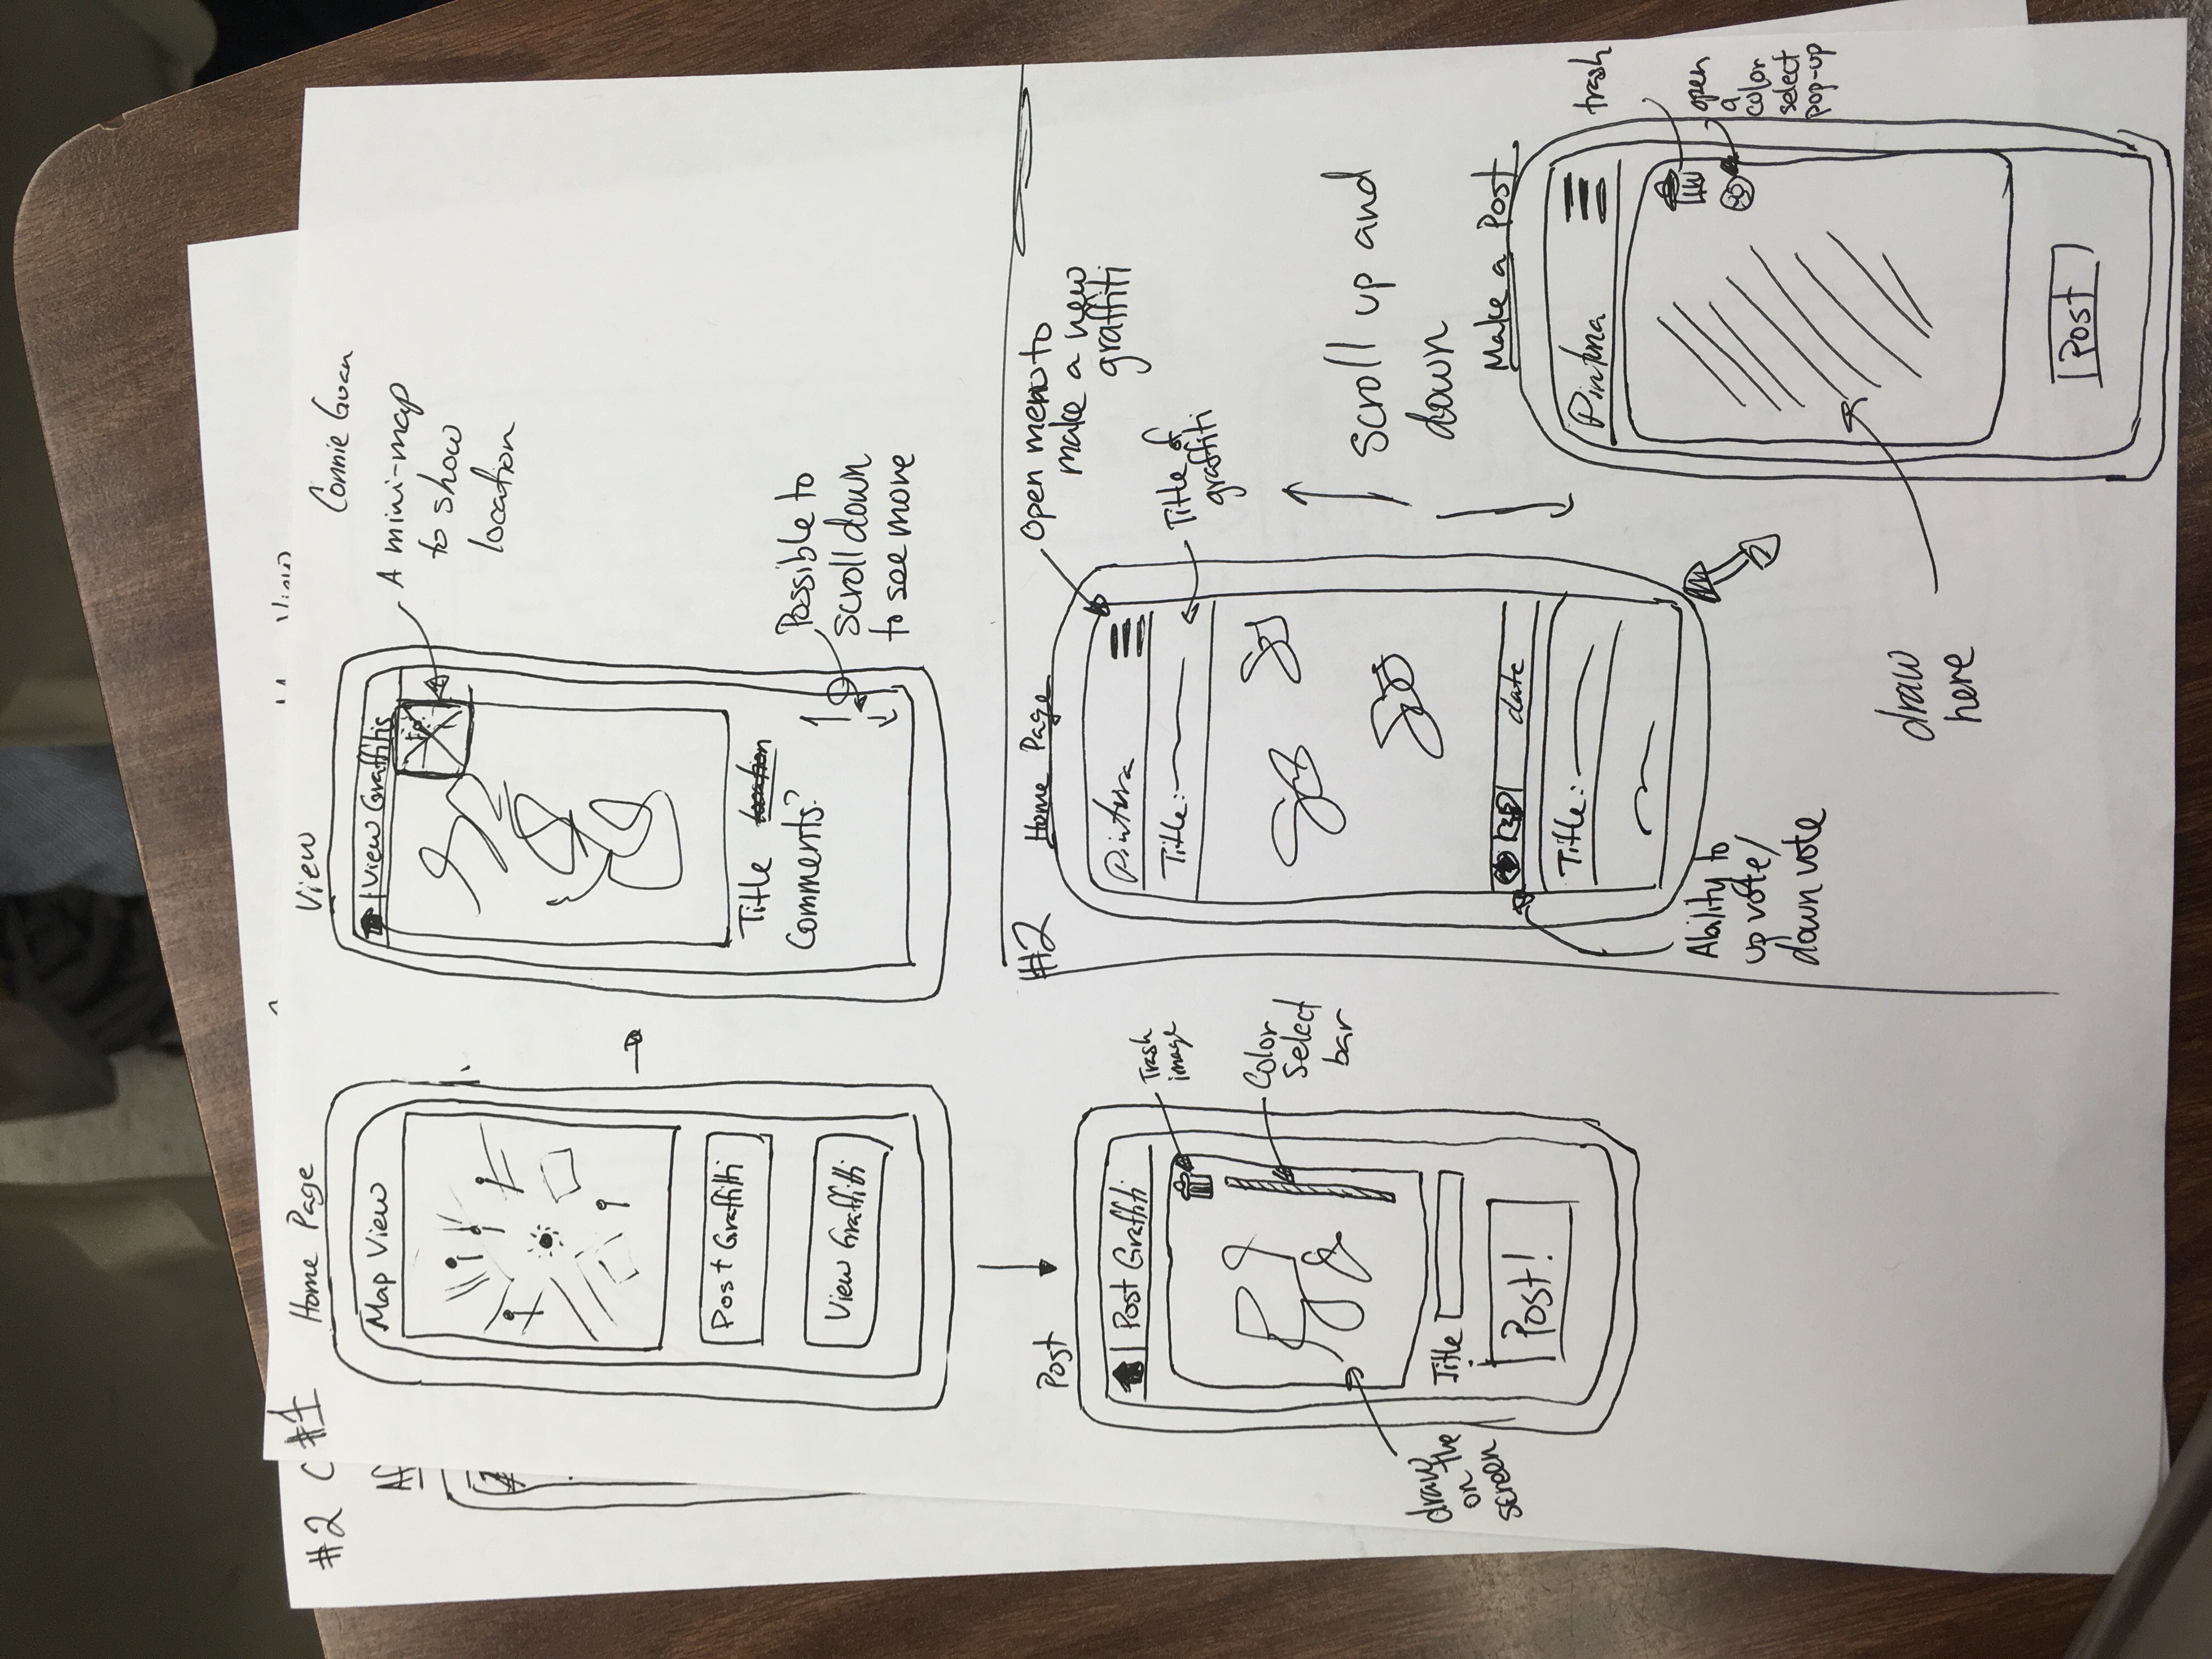 #2 C
#1
Home Page
View
Connie Guan
Map View
Post Graffitti
View Graffitti
View Graffitis
A mini-map
to show
location
Title location
Comments?
Possible to
scroll down
to see more
Post
Post Graffiti
Trash
image
Color
Select
bar
draw
on the
screen
Title
Post!
#2
Home Page
Open menu to
make a new
graffiti
Pintura
Title:
Title of
graffiti
Scroll up and
down
date
Title:
Ability to
up vote/
down vote
Make a Post
Pintura
trash
open
a
color
select
pop-up
draw
here
Post
Map View